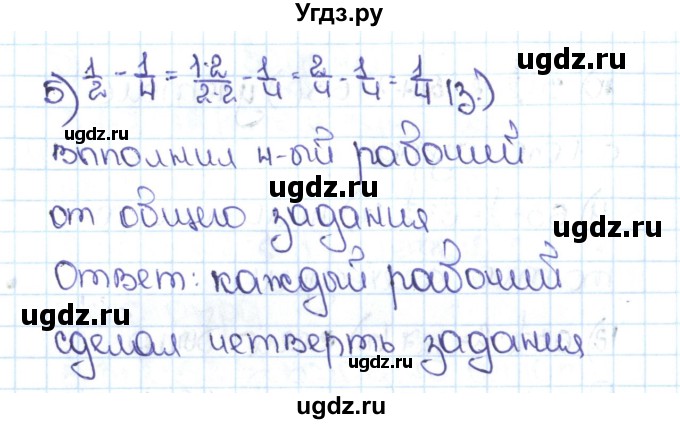 Угдз.ру
5) 1/2 - 1/4 = 1·2/2·2 - 1/4 = 2/4 - 1/4 = 1/4 (з.)
ugdz.ru
ugdz.ru
выполнил 4-ый рабочий
ugdz.ru
ugdz.ru
от общего задания
ugdz.ru
Ответ: каждый рабочий
ugdz.ru
ugdz.ru
сделал четверть задания
ugdz.ru
ugdz.ru
ugdz.ru